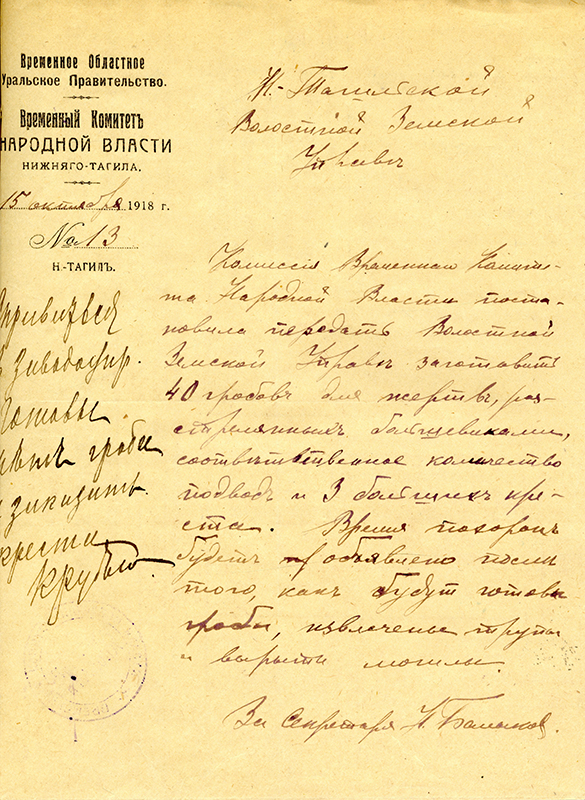 Временное Областное
Уральское Правительство.
Временный Комитетъ
НАРОДНОЙ ВЛАСТИ
НИЖНЯГО-ТАГИЛА.
15 октября 1918 г.
№ 13
Н.-ТАГИЛЪ.
Н-Тагильской
Волостной Земской
Управѣ
Комиссія Временнаго Комите-
та Народной Власти поста-
новила передать Волостной
Земской Управѣ заготовить
40 гробовъ для жертвъ, раз-
стрелянныхъ большевиками,
соотвѣтственное количество
подводъ и 3 большихъ кре-
ста. Время похоронъ
будетъ объявлено после
того, какъ будут готовы
гробы, извлечены трупы
и вырыты могилы.
За Секретаря Н.
Готовы
гробы
и заказать
кресты